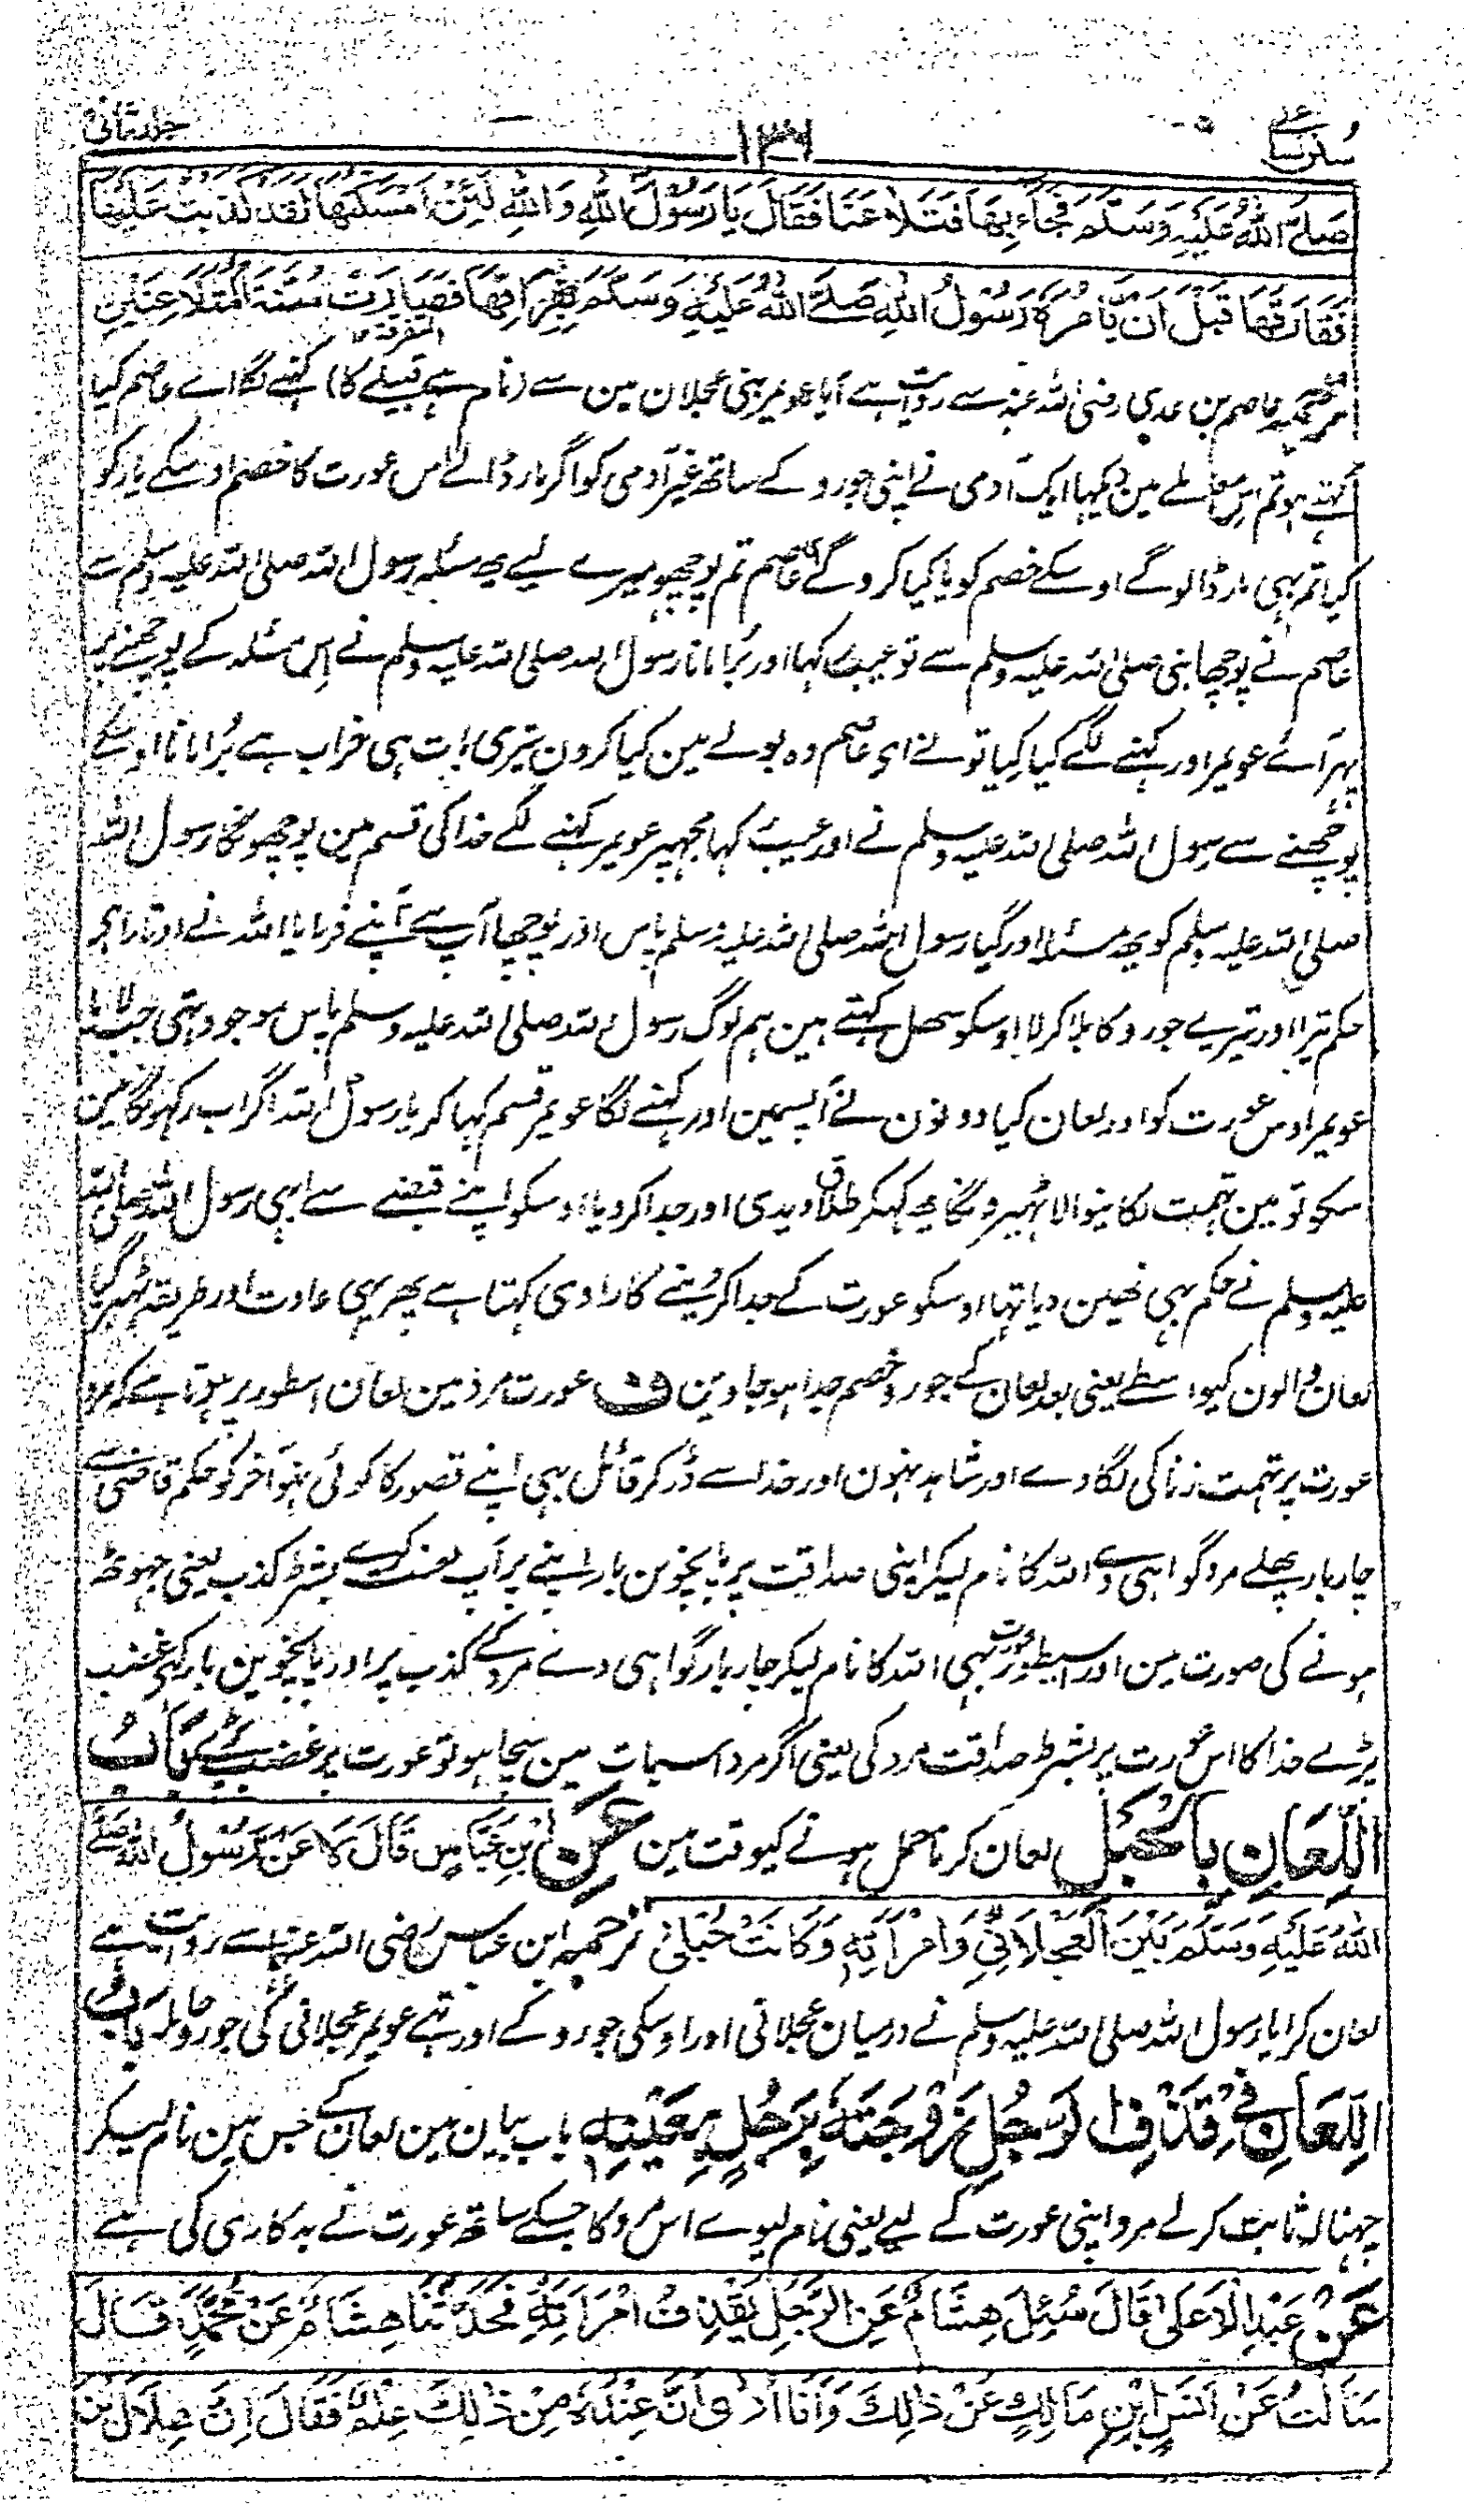 سنن نسائی
۱۳۶
جلد ثانی
صَلَّى اللّٰهُ عَلَيْهِ وَسَلَّمَ فَجَاءَ بِهَا فَتَلَاعَنَا فَقَالَ يَا رَسُوْلَ اللّٰهِ وَاللّٰهِ لَئِنْ اَمْسَكْتُهَا لَقَدْ كَذَبْتُ عَلَيْهَا
فَفَارَقَهَا قَبْلَ اَنْ يَّأْمُرَهٗ رَسُوْلُ اللّٰهِ صَلَّى اللّٰهُ عَلَيْهِ وَسَلَّمَ بِفِرَاقِهَا فَصَارَتْ سُنَّةَ الْمُتَلَاعِنَيْنِ
ترجمہ عاصم بن عدی رضی اللہ عنہ سے روایت ہے آیا عویمر بنی عجلان مین سے (نام ہے قبیلے کا) کہنے لگا اے عاصم کیا
کہتے ہو تم اس معاملے مین دیکہا ایک آدمی نے اپنی جورو کے ساتھ غیر آدمی کو اگر مار ڈالے اس عورت کا خصم اوسکے یار کو
کیا تم بہی مار ڈالوگے اوسکے خصم کو یا کیا کروگے عاصم تم پوچھو میرے لیے یہ مسئلہ رسول اللہ صلی اللہ علیہ وسلم سے
عاصم نے پوچھا نبی صلی اللہ علیہ وسلم سے تو عیب کہا اور بُرا مانا رسول اللہ صلی اللہ علیہ وسلم نے اس مسئلہ کے پوچھنے پر
پہر آئے عویمر اور کہنے لگے کیا کیا تو نے اے عاصم وہ بولے مین کیا کرون تیری بات ہی خراب ہے بُرا مانا اوسکے
پوچھنے سے رسول اللہ صلی اللہ علیہ وسلم نے اور عیب کہا مجہپر عویمر کہنے لگے خدا کی قسم مین پوچھونگا رسول اللہ
صلی اللہ علیہ وسلم کو یہ مسئلا اور گیا رسول اللہ صلی اللہ علیہ وسلم پاس اور پوچھا آپ سے آپنے فرمایا اللہ نے اوتارا ہے
حکم تیرا اور تیرے جورو کا بلا کر لا اوسکو سہل کہتے ہین ہم لوگ رسول اللہ صلی اللہ علیہ وسلم پاس موجود تہی جب لایا
عویمر اوس عورت کو اور لعان کیا دونون نے آپسمین اور کہنے لگا عویمر قسم کہا کر یا رسول اللہ اگر اب رکہونگا مین
سکو تو مین تہمت لگانیوالا ٹہیرونگا یہ کہکر طلاق دیدی اور جدا کر دیا اوسکو اپنے قبضے سے ابہی رسول اللہ صلی اللہ
علیہ وسلم نے حکم بہی نہین دیا تہا اوسکو عورت کے جدا کر دینے کا راوی کہتا ہے پھر یہی عادت اور طریقہ ٹہیر گیا
لعان والون کیواسطے یعنی بعد لعان کے جورو خصم جدا ہو جاوین ف عورت مرد مین لعان اسطور پر ہوتا ہے کہ مرد
عورت پر تہمت زنا کی لگا دے اور شاہد نہون اور خدا سے ڈر کر قائل بہی اپنے قصور کا کوئی نہو آخر کو حکم قاضی سے
چار بار پہلے مرد گواہی دے اللہ کا نام لیکر اپنی صداقت پر پانچوین بار اپنے پر آپ لعنت کرے بشرط کذب یعنی جہوٹھ
ہونے کی صورت مین اور اسیطور عورت بہی اللہ کا نام لیکر چار بار گواہی دے مرد کے کذب پر اور پانچوین بار کہی غضب
پڑے خدا کا اس عورت پر بشرط صداقت مرد کی یعنی اگر مرد اسبات مین سچا ہو تو عورت پر غضب پڑے بَابُ
اللِّعَانِ بِالْحَبَلِ لعان کرنا حمل ہونے کیوقت مین عَنِ ابْنِ عَبَّاسٍ قَالَ لَاعَنَ رَسُوْلُ اللّٰهِ صَلَّى
اللّٰهُ عَلَيْهِ وَسَلَّمَ بَيْنَ الْعَجْلَانِيِّ وَامْرَأَتِهٖ وَكَانَتْ حُبْلٰى ترجمہ ابن عباس رضی اللہ عنہما سے روایت ہے
لعان کرایا رسول اللہ صلی اللہ علیہ وسلم نے درمیان عجلانی اور اوسکی جورو کے اور تہے عویمر عجلانی کی جورو حاملہ بَابُ
اللِّعَانِ فِيْ قَذْفِ الرَّجُلِ زَوْجَتَهٗ بِرَجُلٍ بِعَيْنِهٖ باب بیان مین لعان کے جس مین نام لیکر
چہنالہ ثابت کرلے مرد اپنی عورت کے لیے یعنی نام لیوے اس مرد کا جسکے ساتھ عورت نے بدکاری کی ہے
عَنْ عَبْدِ الْاَعْلٰى قَالَ سُئِلَ هِشَامٌ عَنِ الرَّجُلِ يَقْذِفُ امْرَاَتَهٗ فَحَدَّثَنَا هِشَامٌ عَنْ مُحَمَّدٍ قَالَ
سَاَلْتُ عَنْ اَنَسِ ابْنِ مَالِكٍ عَنْ ذٰلِكَ وَاَنَا اَرٰى اَنَّ عِنْدَهٗ مِنْ ذٰلِكَ عِلْمًا فَقَالَ اِنَّ هِلَالَ بْنَ